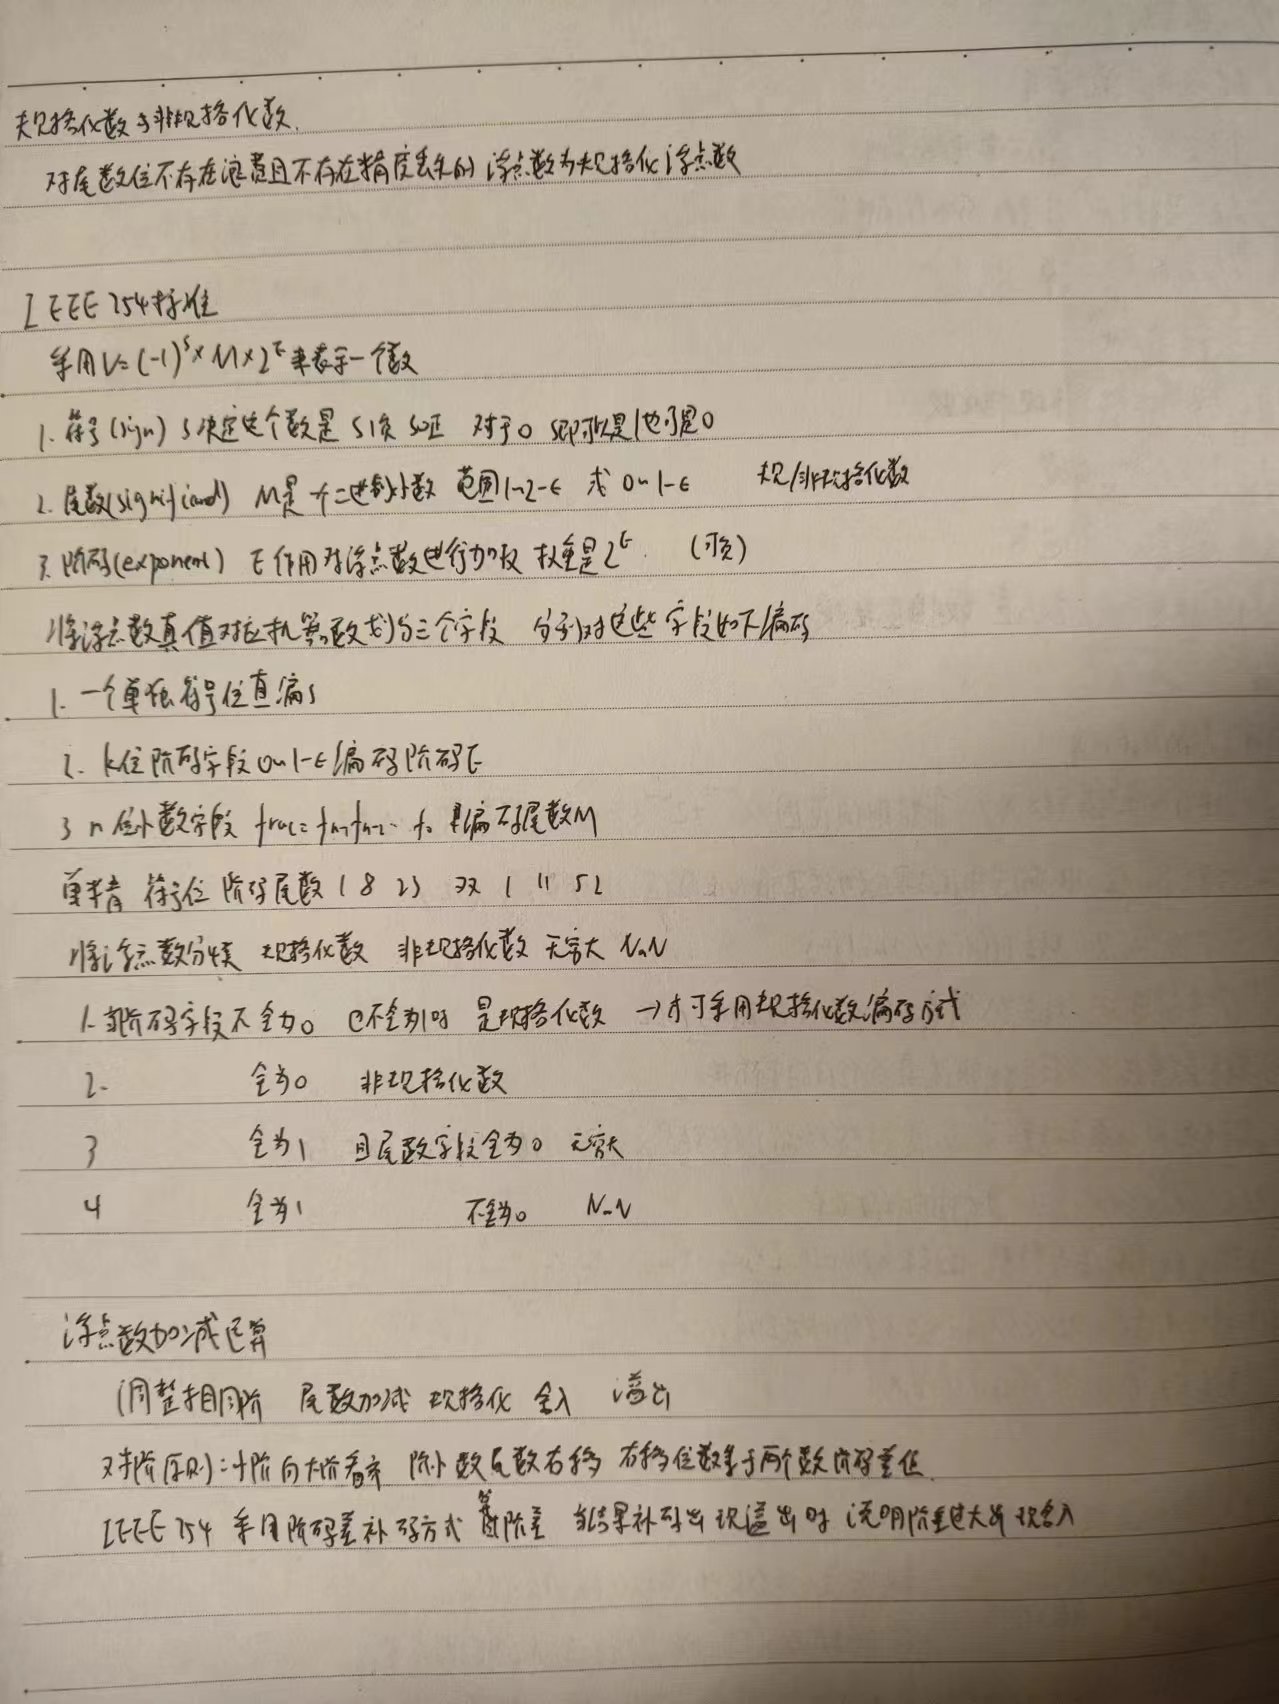 规格化数与非规格化数.
对尾数位不存在浪费且不存在精度丢失的浮点数为规格化浮点数
IEEE 754标准
采用V=(-1)^s×M×2^E来表示一个数
1. 符号(sign) s决定这个数是 s1负 s0正 对于0 s即可以是1也可是0
2. 尾数(significand) M是一个二进制小数 范围1~2-ε 或 0~1-ε 规/非规格化数
3. 阶码(exponent) E作用对浮点数进行加权 权重是2^E. (可负)
将浮点数真值对应机器数划分三个字段 分别对这些字段如下编码
1. 一个单独符号位直编s
2. k位阶码字段0~1-ε编码阶码E
3 n位小数字段 frac=fn-1fn-2.. f0 编码尾数M
单精 符号位 阶码尾数 1 8 23 双 1 11 52
将浮点数分类 规格化数 非规格化数 无穷大 NaN
1. 当阶码字段不全为0 e不全为1时 是规格化数 →才可采用规格化数编码方式
2. 全为0 非规格化数
3 全为1 且尾数字段全为0 无穷大
4 全为1 不全为0 NaN
浮点数加减运算
调整相同阶 尾数加减 规格化 舍入 溢出
对阶(原则):小阶向大阶看齐 阶小数尾数右移 右移位数等于两个数阶码差值.
IEEE 754 采用阶码差补码方式 算阶差 当结果补码出现溢出时 说明阶差过大出现舍入